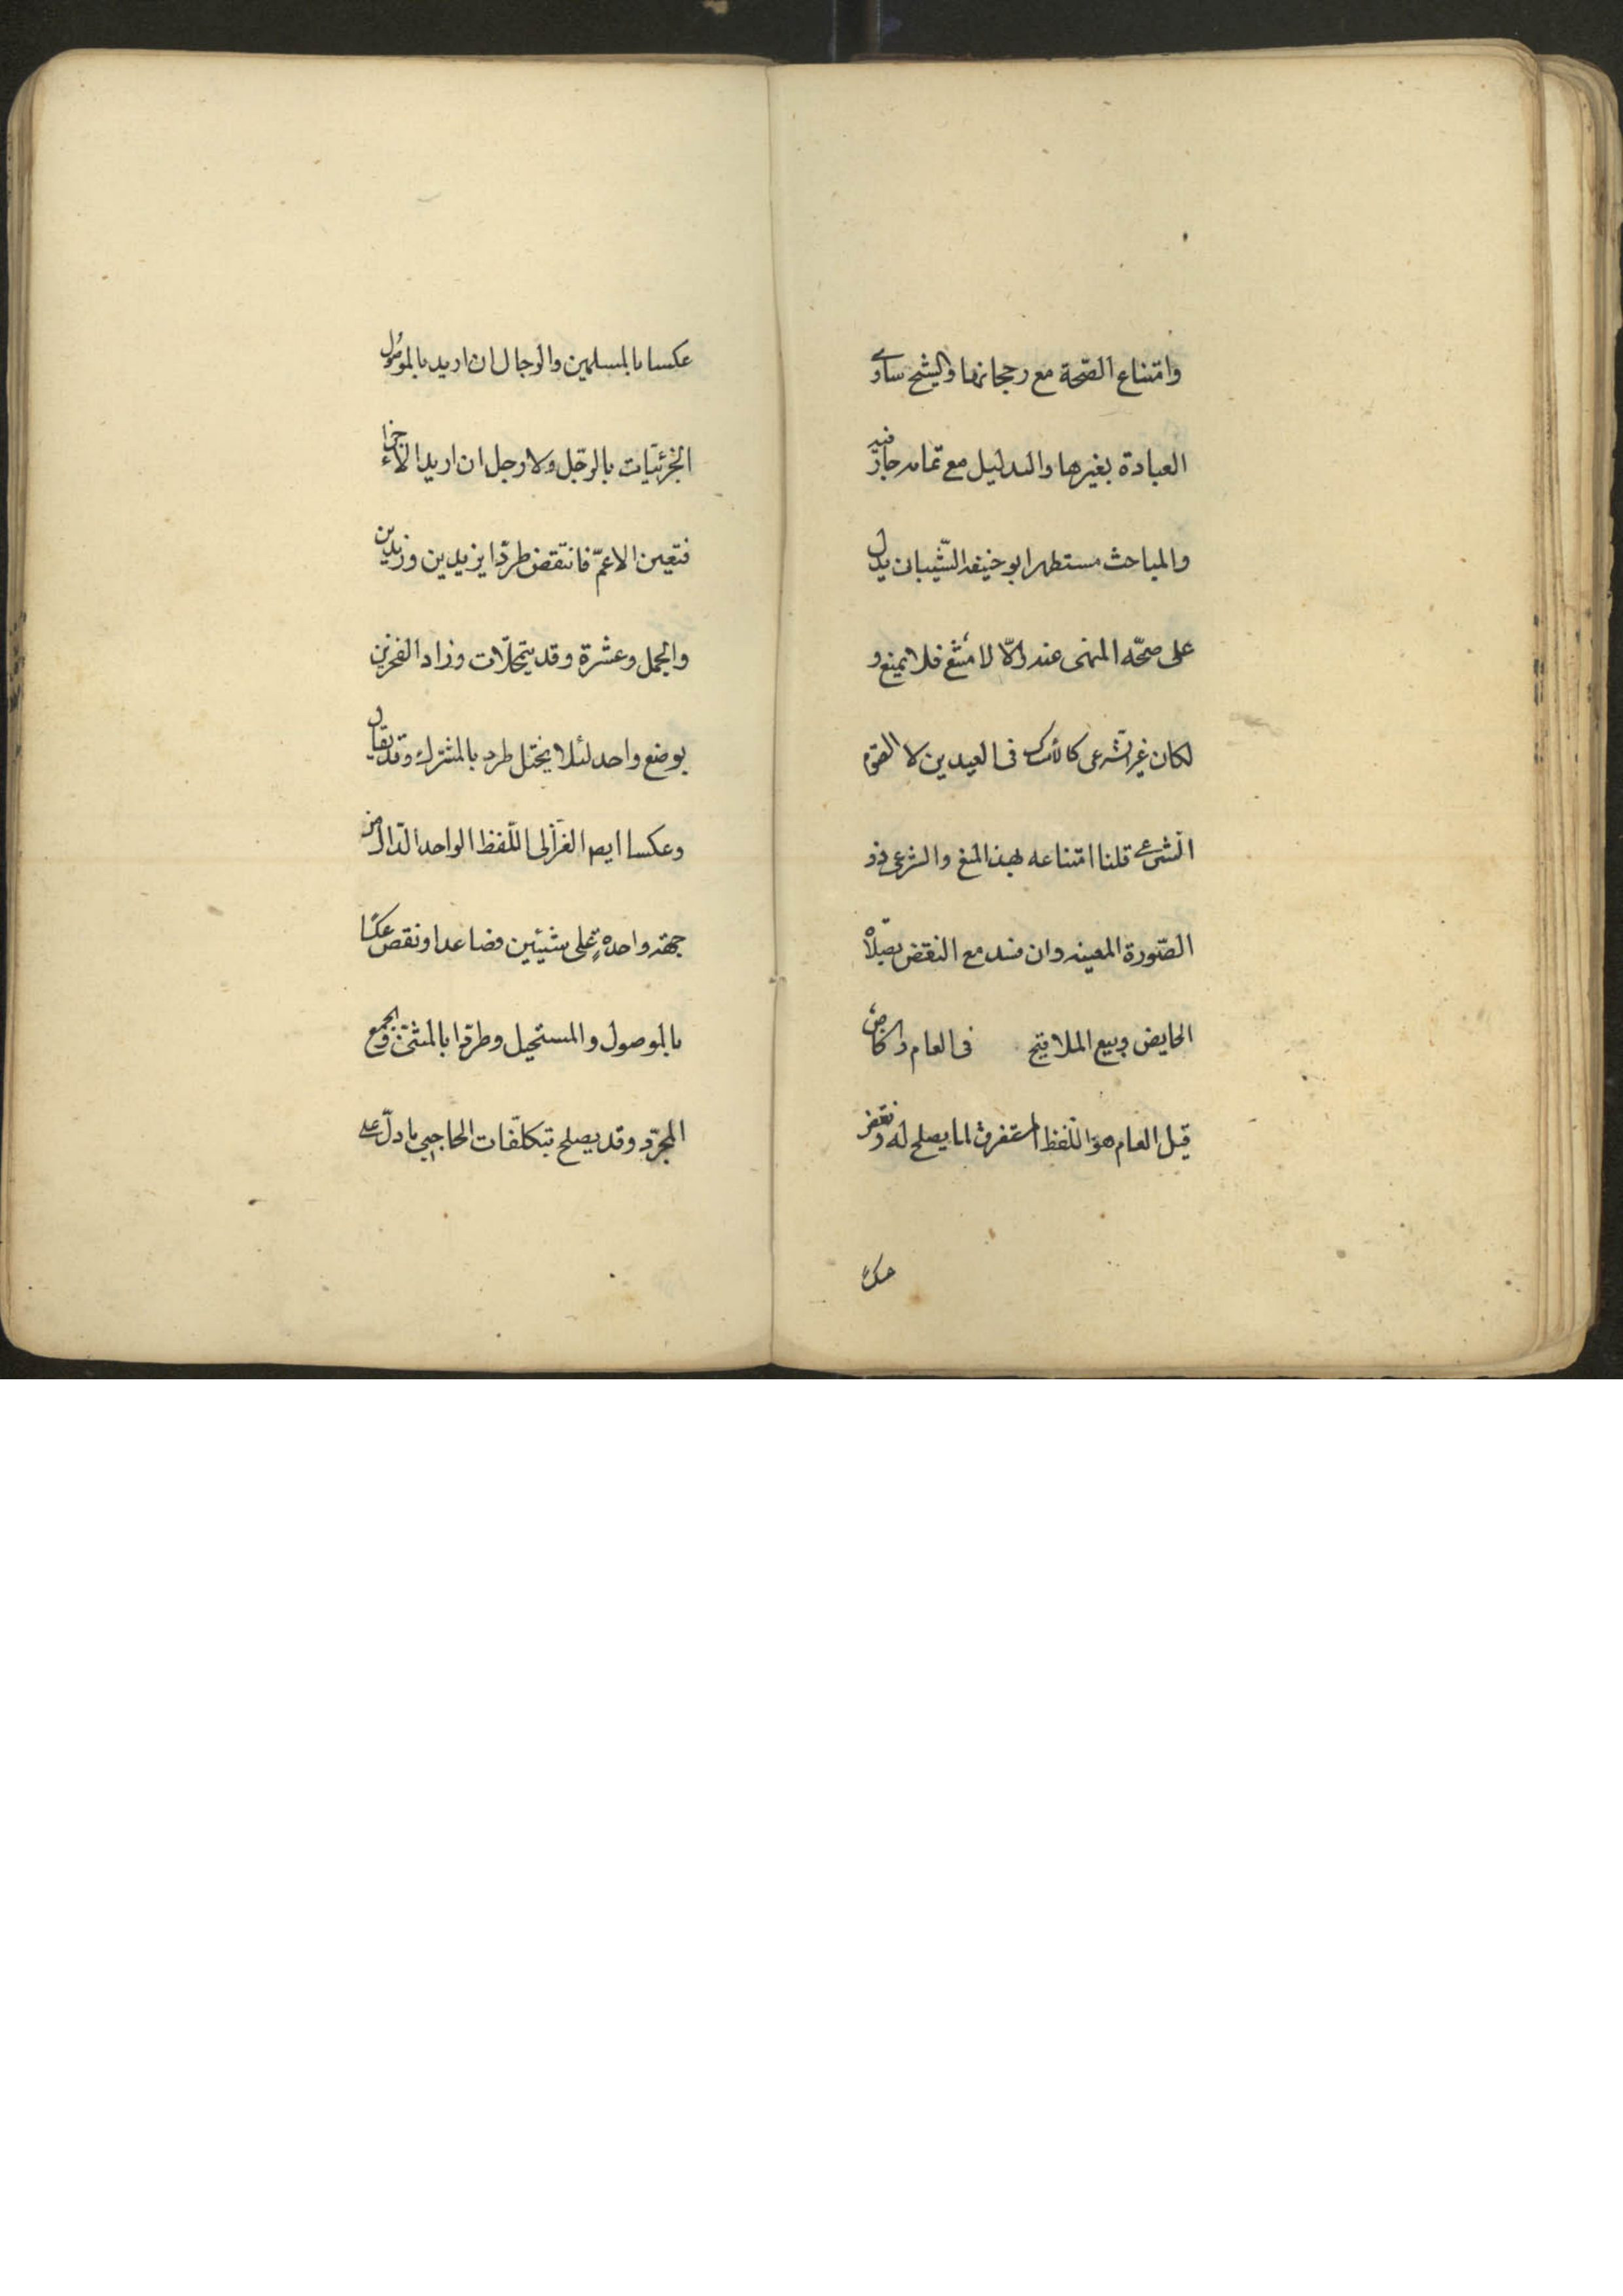 وامتناع الصّحة مع رجحانها والشيخ ساوے
العبادة بغيرها والدليل مع تمامه جار فيه
والمباحث مستطهر ابو حنيفه الشّيبانى يدل
على صحّه المنهى عنه والّا لامتنع فلا يمنع و
لكان غير الشرعى كالامساك فى العيدين لا الصّوم
الشّرعے قلنا امتناعه بهذا المنع والشرعى ذو
الصّورة المعينه وان فسد مع النقض بصلاه
الحايض وبيع الملاقيح فى العام والخاص
قيل العام هو اللّفظ المستغرق لما يصلح له ونقض
عكسًا
عكسا بالمسلمين والرجال ان اريد بالموصول
الجزئيّات بالرجل ولا رجل ان اريد الاجزاء
فتعين الاعمّ فانتقض طردًا بزيدين وزيدين
والجمل وعشرة وقد يتمحلات وزاد الفخرين
بوضع واحد لئلا يختل طرده بالمشترك وقد يقال
وعكسا ايض الغزالى اللّفظ الواحد الدّال من
جهة واحدهٍ على شيئين فصاعدا ونقض عكسًا
بالموصول والمستحيل وطردًا بالمثنى والجمع
المجرّد وقد يصلح بتكلّفات الحاجبى ما دلّ على